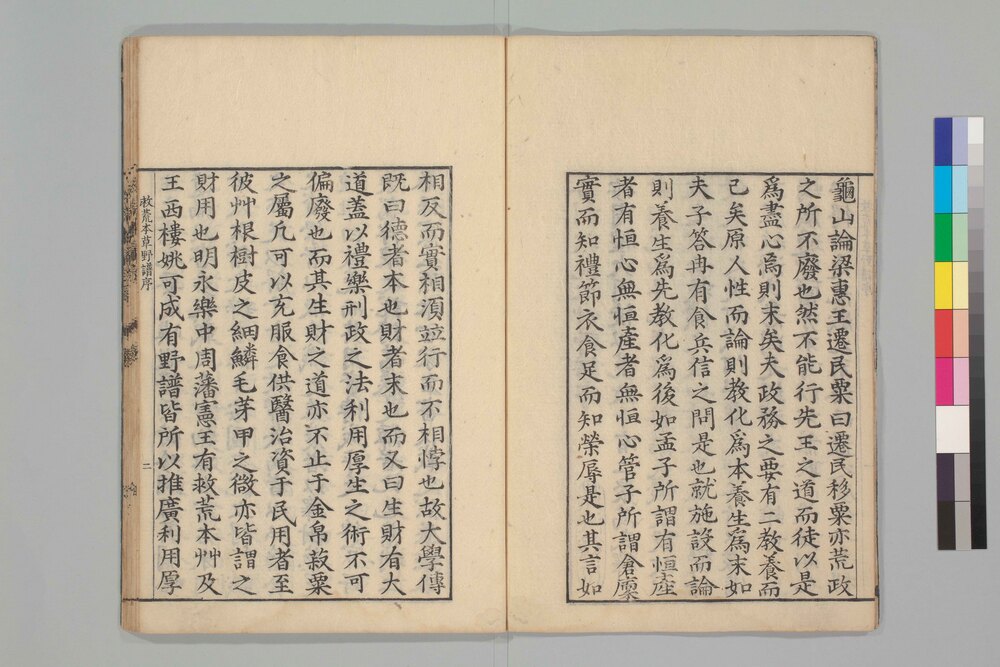 龜山論梁惠王遷民粟曰遷民移粟亦荒政
之所不廢也然不能行先王之道而徒以是
爲盡心焉則末矣夫政務之要有二教養而
已矣原人性而論則教化爲本養生爲末如
夫子答冉有食兵信之問是也就施設而論
則養生爲先教化爲後如孟子所謂有恒産
者有恒心無恒産者無恒心管子所謂倉廩
實而知禮節衣食足而知榮辱是也其言如
相反而實相須竝行而不相悖也故大學傳
既曰德者本也財者末也而又曰生財有大
道蓋以禮樂刑政之法利用厚生之術不可
偏廢也而其生財之道亦不止于金帛菽粟
之屬凡可以充服食供醫治資于民用者至
彼艸根樹皮之細鱗毛芽甲之微亦皆謂之
財用也明永樂中周藩憲王有救荒本艸及
王西樓姚可成有野譜皆所以推廣利用厚
救荒本草野譜序
二